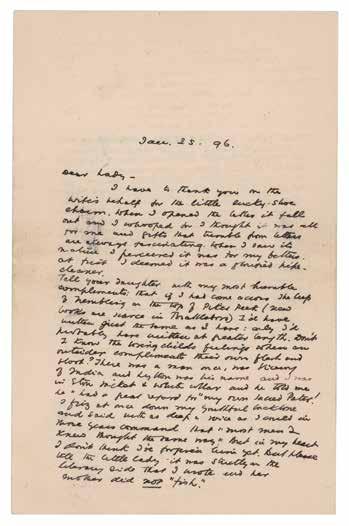 Jan. 25. 96.
Dear Lady –
I have to thank you on the
wife's behalf for the little lucky-shoe
charm. When I opened the letter it fell
out and I whooped for I thought it was all
for me and gifts that tumble from letters
are always fascinating. When I saw its
nature I perceived it was for my betters.
at first I deemed it was a glorified pipe-
cleaner.
Tell your daughter with my most humble
compliments that if I had come across the
trembling on the top of Pikes Peak (new
books are scarce in Brattleboro) I'd have
written just the same as I have: only I'd
probably have written at greater length. Don't
I know the loving child's feelings when an
outsider compliments their own flesh and
blood? There was a man once, was Viceroy
of India and Lytton was his name and I was
in and white and he told me
he "had a great regard for" my own sacred Pater!
I at once down my youthful backbone
and said in as deep a voice as I could in
those years command that "most men I
knew thought the same way" But in my heart
I don't think I've forgiven him yet. But please
tell the little lady it was strictly in the
literary side that I wrote and her
mother did not "fish."